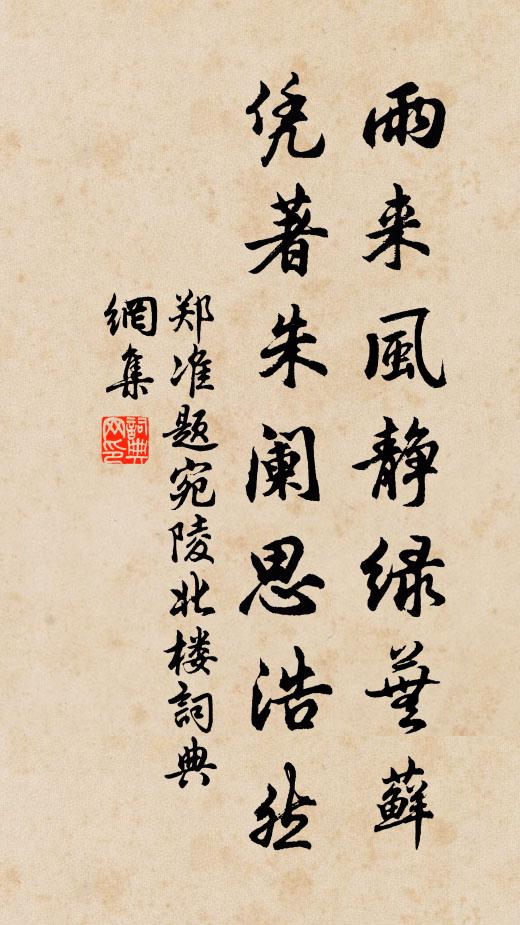 雨来風静绿蕪蘚
凭著朱阑思浩然
郑准题宛陵北楼詞典
網集
詞典网印